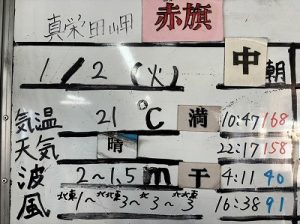 真栄田岬 赤旗
1/2(火) 中 朝
気温 21℃ 満 10:47 168
天気 晴 22:17 158
波 2～1.5m 干 4:11 40
風 北東1～北北東3～北3～北3 16:38 91